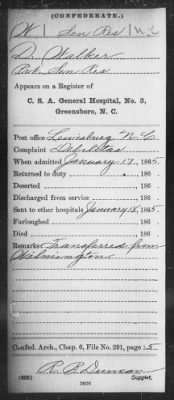 (CONFEDERATE.)
W | Sen Res | N.C.
D. Walker
Pvt. Sen Res
Appears on a Register of
C. S. A. General Hospital, No. 3,
Greensboro, N. C.
Post office Louisburg N. C.
Complaint Debilitas
When admitted January 17, 1865.
Returned to duty , 186 .
Deserted , 186 .
Discharged from service , 186 .
Sent to other hospitals January 18, 1865.
Furloughed , 186 .
Died , 186 .
Remarks: Transferred from
Wilmington
Confed. Arch., Chap. 6, File No. 291, page 5
R. B. Duncan
(635) Copyist.